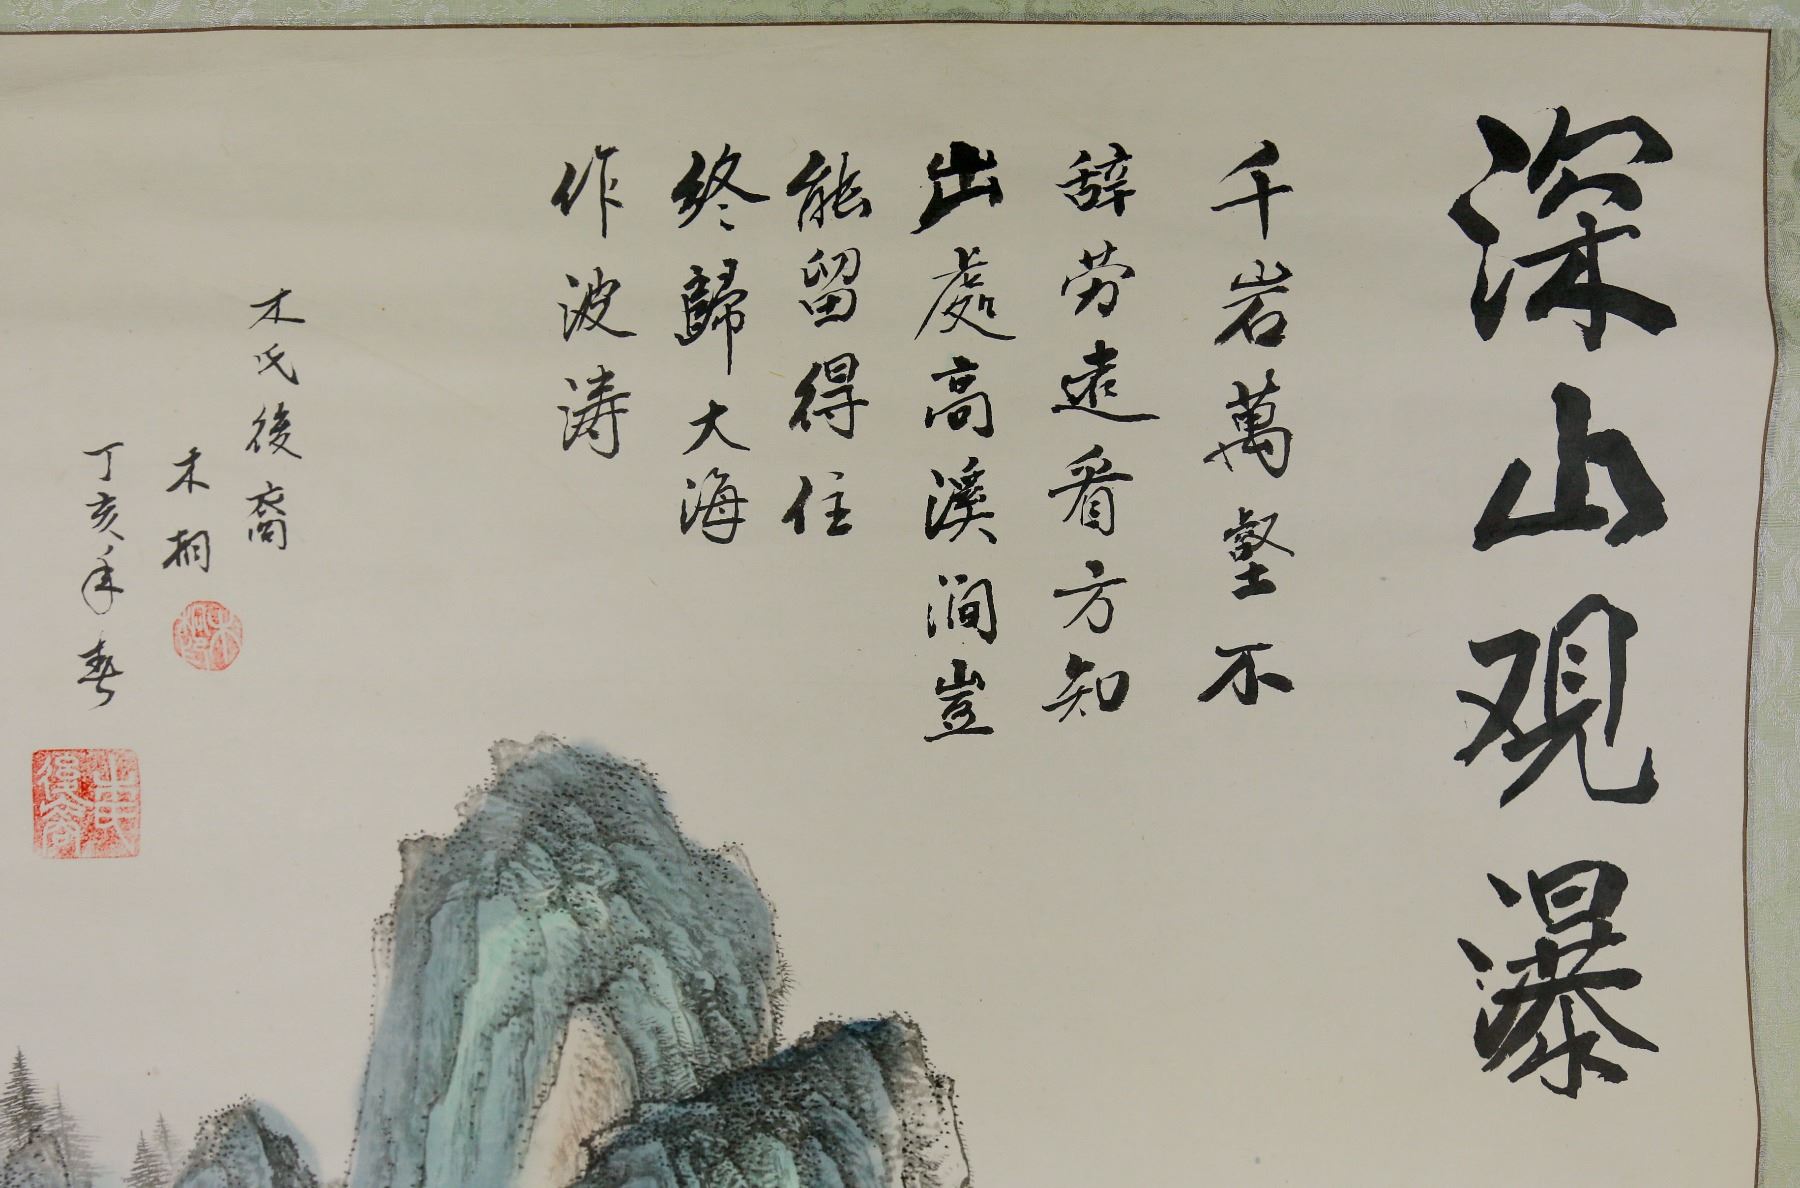 深山观瀑
千岩萬壑不
辞劳遠看方知
出處高溪澗豈
能留得住
終歸大海
作波涛
木氏後裔
木桐
丁亥年春
木氏後裔